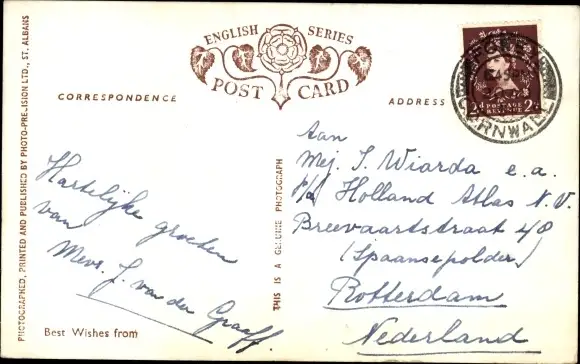 ENGLISH SERIES
POST CARD
CORRESPONDENCE
ADDRESS
Hartelijke groeten
van
Mevr. J. van der Graaff.
Best Wishes from
PHOTOGRAPHED, PRINTED AND PUBLISHED BY PHOTO-PRECISION LTD., ST. ALBANS
THIS IS A GENUINE PHOTOGRAPH
CORNWALL
POSTAGE
REVENUE
Aan
Mej. J. Wiarda e.a.
p/a Holland Atlas N.V.
Breevaartstraat 48
(Spaansepolder)
Rotterdam
Nederland